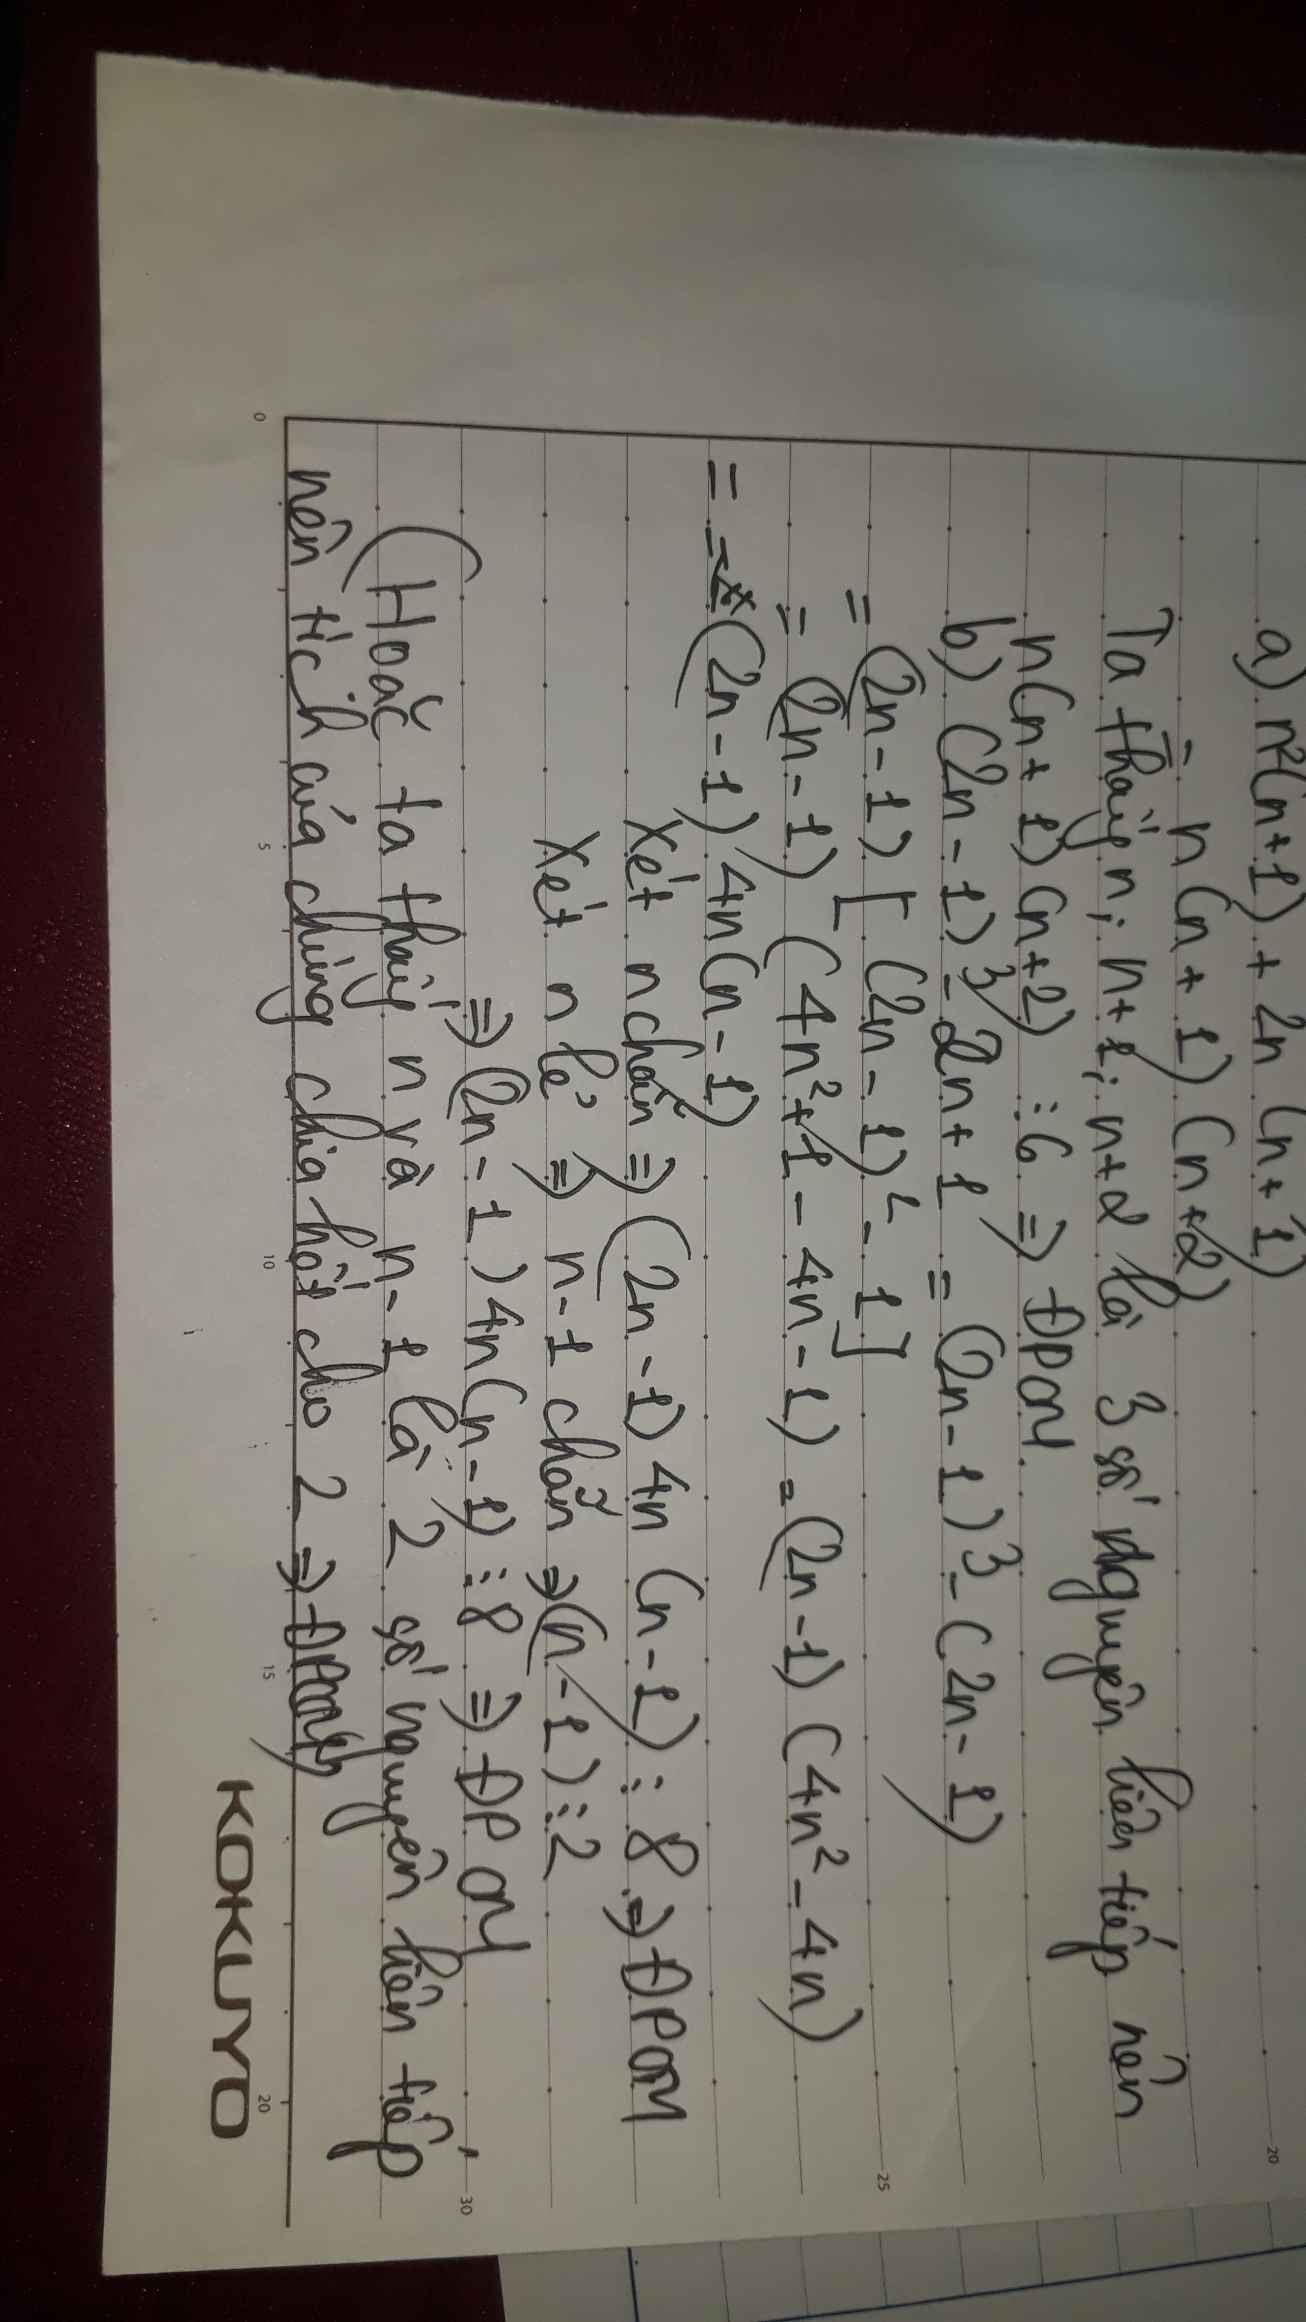 a) n²(n+1) + 2n (n+1)
= n (n+1) (n+2)
Ta thấy n; n+1; n+2 là 3 số nguyên liên tiếp nên
n(n+1)(n+2) ⋮ 6 => ĐPCM.
b) (2n-1)³-2n+1 = (2n-1)³-(2n-1)
= (2n-1) [(2n-1)²-1]
= (2n-1) (4n²+1-4n-1) = (2n-1) (4n²-4n)
= (2n-1) 4n(n-1)
Xét n chẵn => (2n-1) 4n (n-1) ⋮ 8 => ĐPCM
Xét n lẻ => n-1 chẵn => (n-1) ⋮ 2
=> (2n-1) 4n(n-1) ⋮ 8 => ĐPCM
(Hoặc ta thấy n và n-1 là 2 số nguyên liên tiếp
nên tích của chúng chia hết cho 2 => ĐPCM)
KOKUYO
0 5 10 15 20
20
25
30